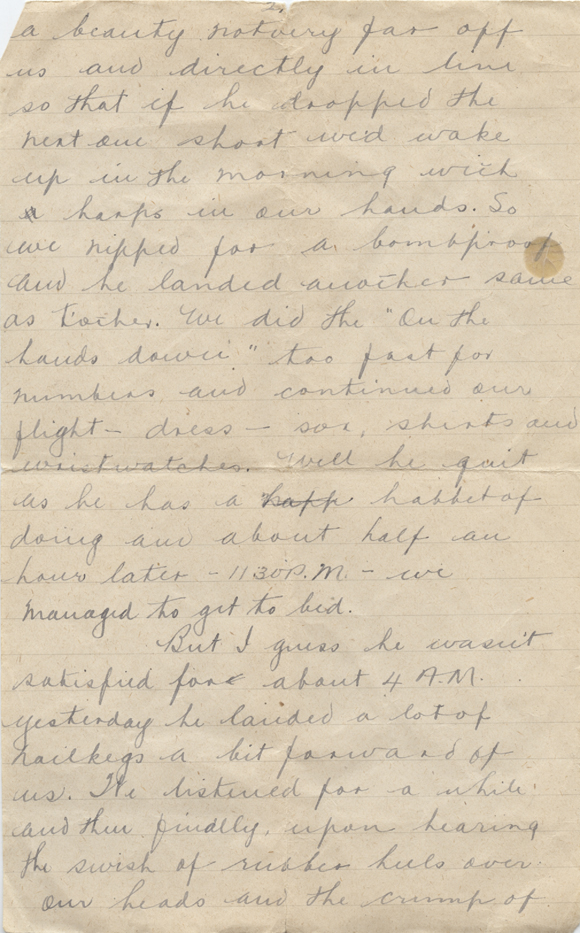 2.
a beauty not very far off
us and directly in line
so that if he dropped the
next one short we'd wake
up in the morning with
harps in our hands. So
we nipped for a bombproof
and he landed another same
as t'other. We did the "On the
hands down" too fast for
numbers and continued our
flight - dress - sox, shirts and
wristwatches. Well he quit
as he has a happ habbet of
doing and about half an
hour later - 11 30 P.M. - we
managed to get to bed.
But I guess he wasn't
satisfied for about 4 A.M.
yesterday he landed a lot of
nailkegs a bit forward of
us. We listened for a while
and then finally, upon hearing
the swish of rubber heels over
our heads and the crump of